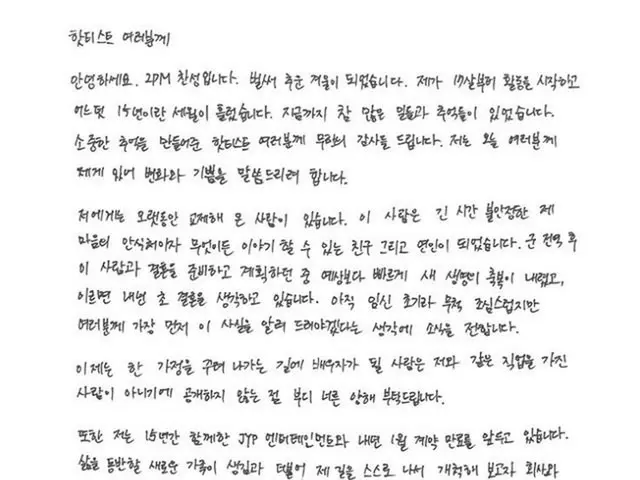 핫티스트 여러분께
안녕하세요. 2PM 찬성입니다. 벌써 추운 겨울이 되었습니다. 제가 17살부터 활동을 시작하고
어느덧 15년이란 세월이 흘렀습니다. 지금까지 참 많은 일들과 추억들이 있었습니다.
소중한 추억을 만들어준 핫티스트 여러분께 무한의 감사를 드립니다. 저는 오늘 여러분께
제게 있어 변화와 기쁨을 말씀드리려 합니다.
저에게는 오랫동안 교제해 온 사람이 있습니다. 이 사람은 긴 시간 불안정한 제
마음의 안식처이자 무엇이든 이야기 할 수 있는 친구 그리고 연인이 되었습니다. 군 전역 후
이 사람과 결혼을 준비하고 계획하던 중 예상보다 빠르게 새 생명의 축복이 내렸고,
이르면 내년 초 결혼을 생각하고 있습니다. 아직 임신 초기라 무척 조심스럽지만
여러분께 가장 먼저 이 사실을 알려 드려야겠다는 생각에 소식을 전합니다.
이제는 한 가정을 꾸려 나가는 길에 배우자가 될 사람은 저와 같은 직업을 가진
사람이 아니기에 공개하지 않는 점 부디 너른 양해 부탁드립니다.
또한 저는 15년간 함께한 JYP 엔터테인먼트와 내년 1월 계약 만료를 앞두고 있습니다.
삶을 동반할 새로운 가족이 생김과 더불어 제 길을 스스로 나서 개척해 보고자 회사와